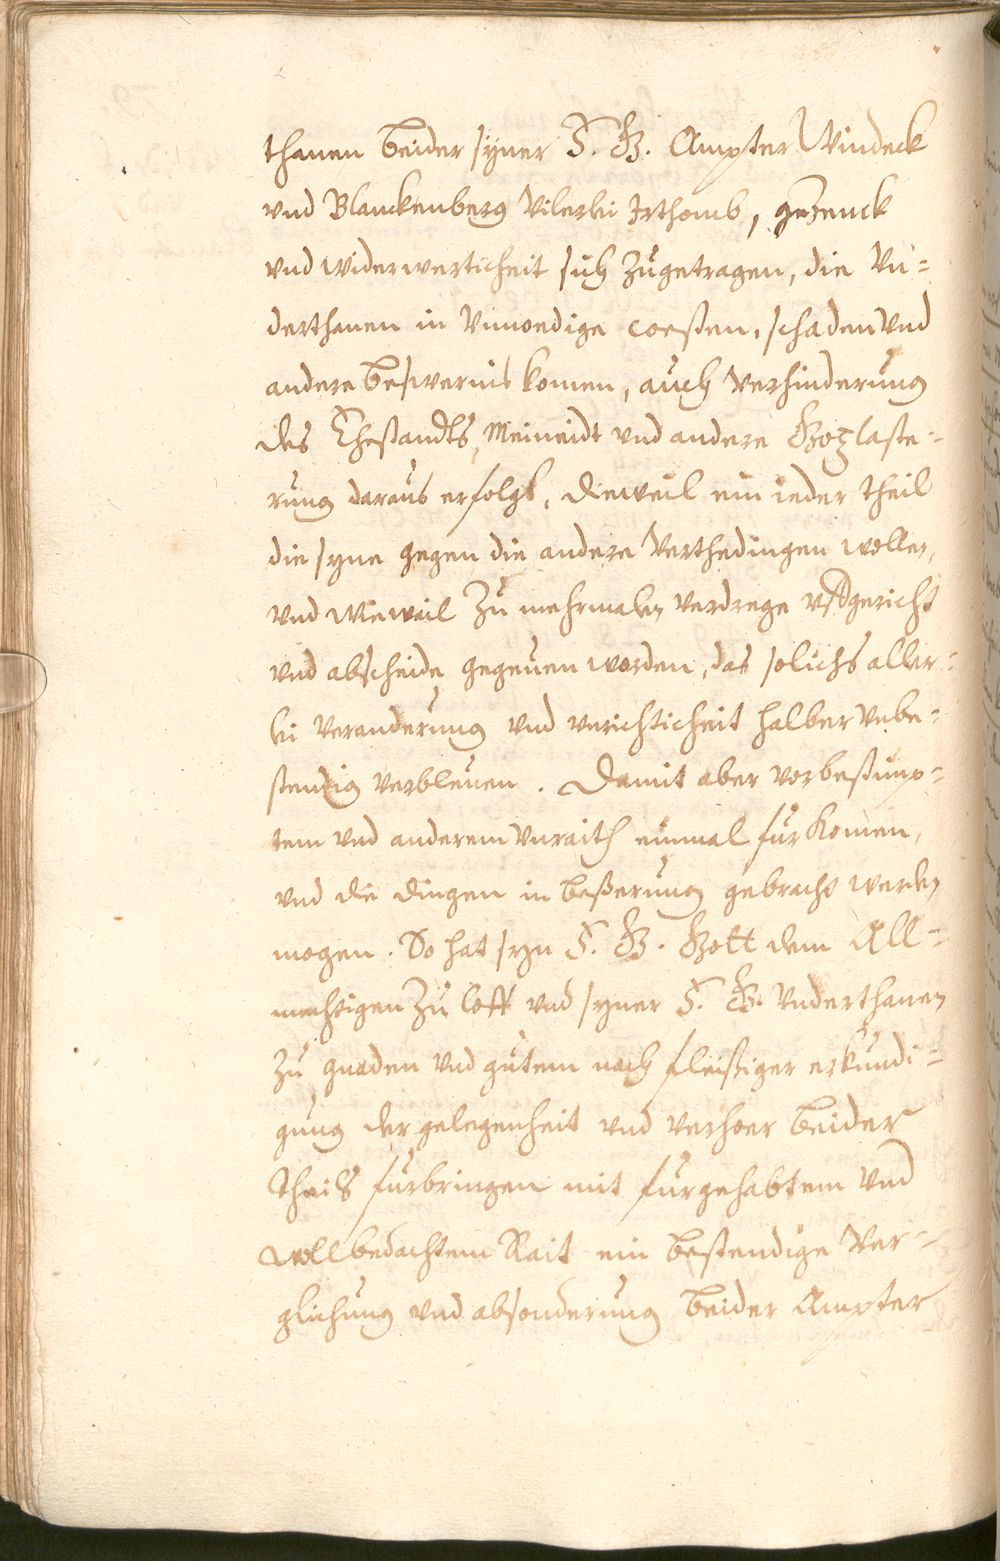 thanen beider syner F. G. Ampter Windeck
vnd Blanckenberg vilerlei Irthomb, gezenck
vnd widerwerticheit sich zugetragen, die Vn=
derthanen in vnnoedige coesten, schaden vnd
andere beswernis komen, auch verhinderung
des Ehestandts, Meineidt vnd andere Gotzlaste=
rung daraus erfolgt, dieweil ein ieder theil
die syne gegen die andere verthedingen wollen,
vnd wiewail zu mehrmalen verdrege vßgericht
vnd abscheide gegeuen worden, das solichs aller=
lei veranderung vnd vnrichticheit halber vnbe=
stendig verbleuen. Damit aber vorbestimp=
tem vnd anderem vnraith einmal furkomen,
vnd die dingen in beßerung gebracht werden
mogen. So hat syn F. G. Gott dem All=
mechtigen zu loff vnd syner F. G. Vnderthanen
zu gnaden vnd gutem nach fleißiger erkundi=
gung der gelegenheit vnd verhoer beider
theils furbringen mit furgehabtem vnd
wollbedachtem Rait ein bestendige Ver=
glichung vnd absonderung beider Ampter